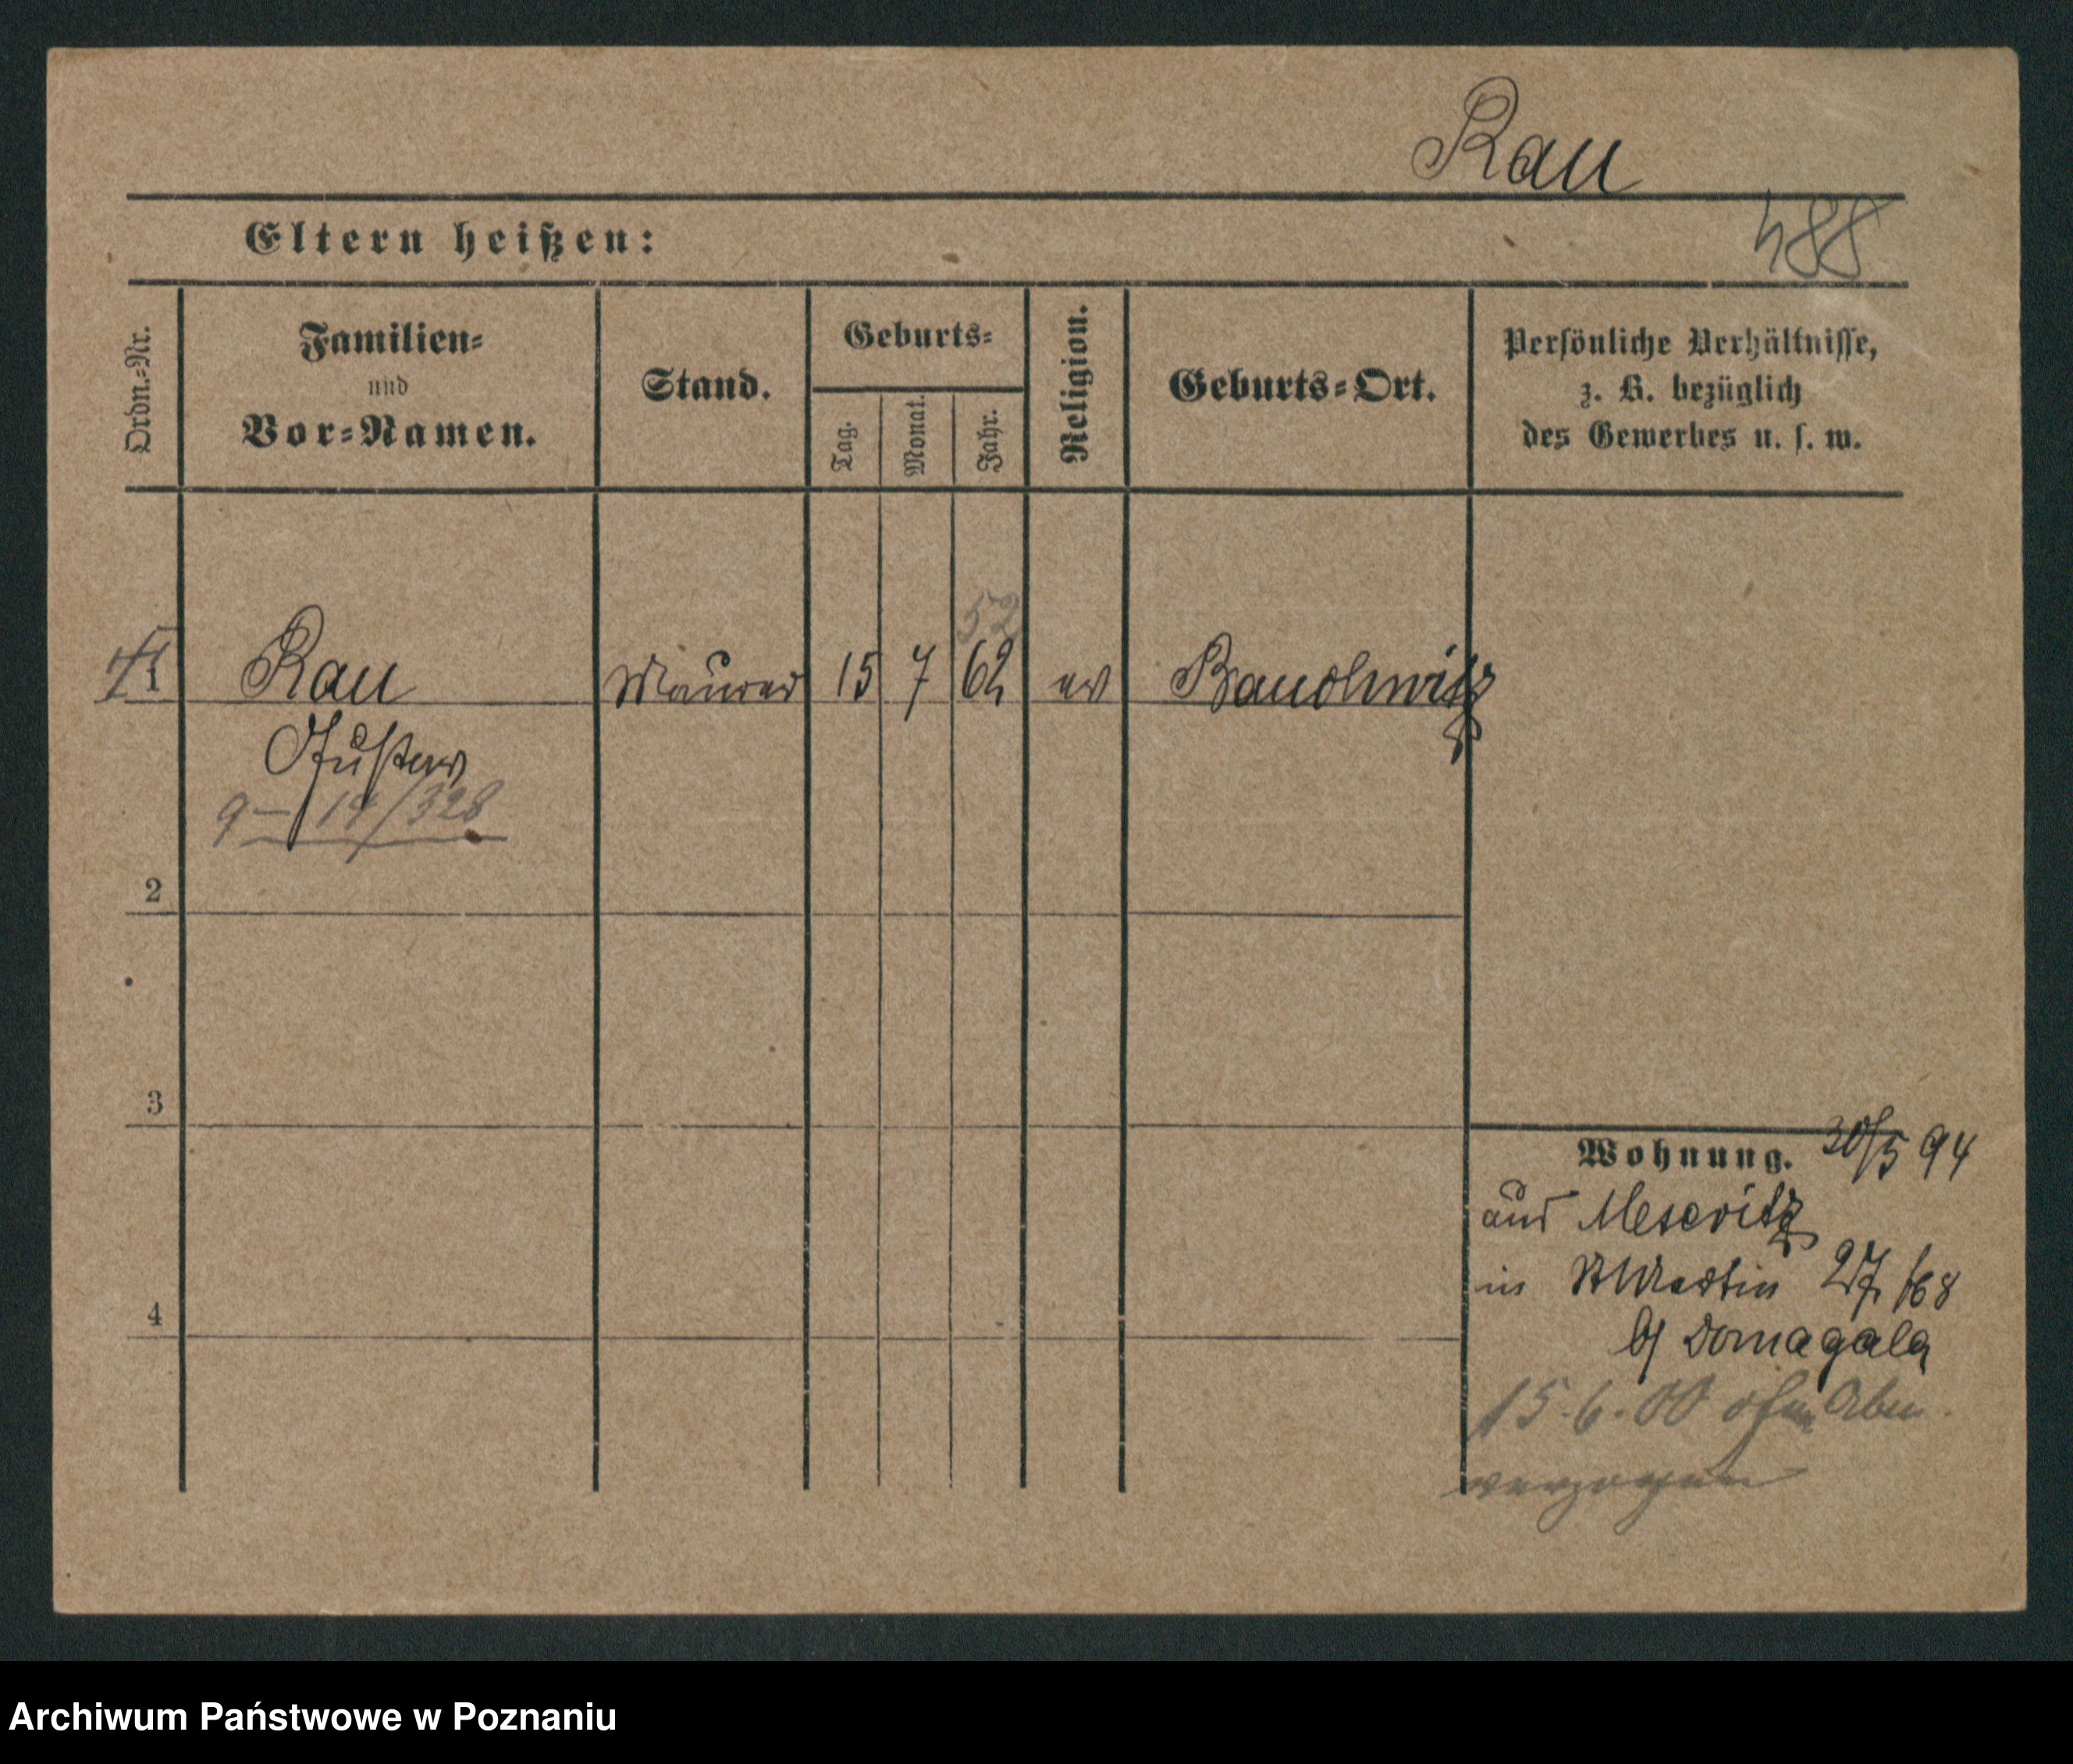 Rau
488
Eltern heißen:
Ordn.-Nr.
Familien-
und
Vor-Namen.
Stand.
Geburts-
Tag.
Monat.
Jahr.
Religion.
Geburts-Ort.
Persönliche Verhältnisse,
z. B. bezüglich
des Gewerbes u. s. w.
52
1 Rau Maurer 15 7 62 ev
Gustav
9-14/328
2
3
4
Wohnung. 30/5 94
aus Meseritz
in St Martin 27 /68
b/ Domagala
15.6.00 ohne Abm.
verzogen
Archiwum Państwowe w Poznaniu